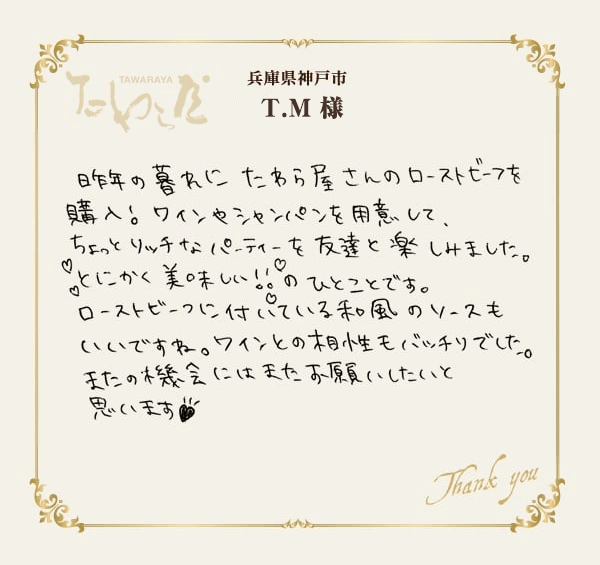 TAWARAYA
たわらや
兵庫県神戸市
T.M 様
昨年の暮れに たわら屋 さんの ローストビーフを
購入! ワインやシャンパンを用意して、
ちょっとリッチな パーティーを 友達と 楽しみました。
♡とにかく 美味しい!!♡の ひとことです。
ローストビーフに付いている和風 のソースも
いいですね。ワインとの相性もバッチリでした。
またの機会にはまたお願いしたいと
思います♥
Thank you